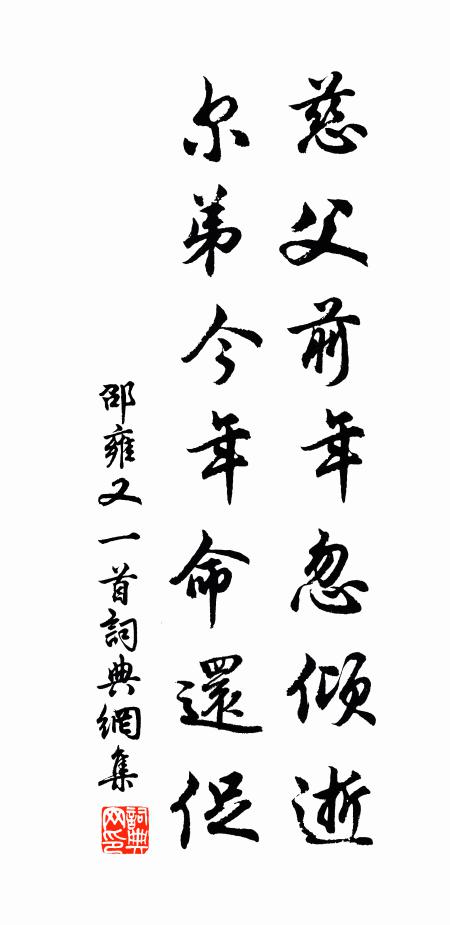 慈父前年忽倾逝
尔弟今年命還促
邵雍又一首詞典網集
詞典网印